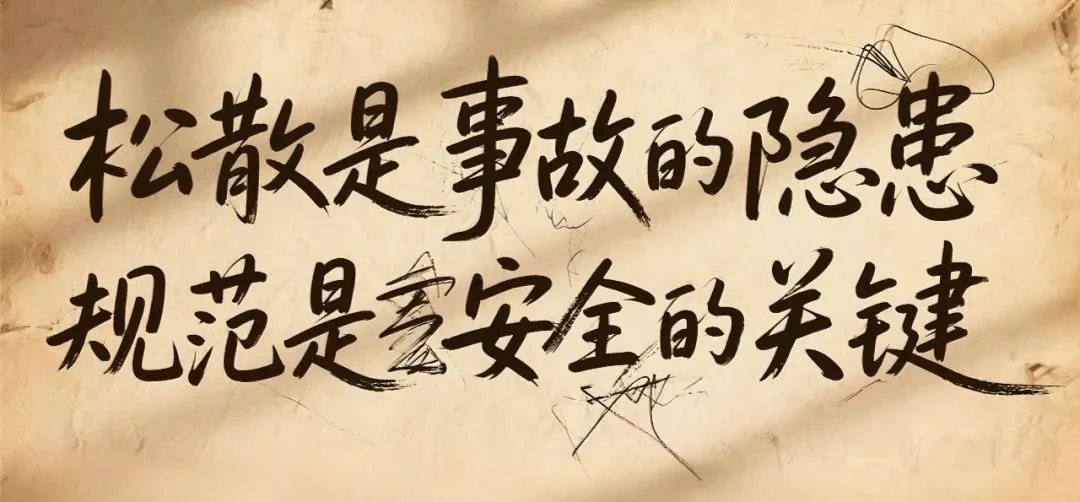 松散是事故的隐患
规范是安全的关键